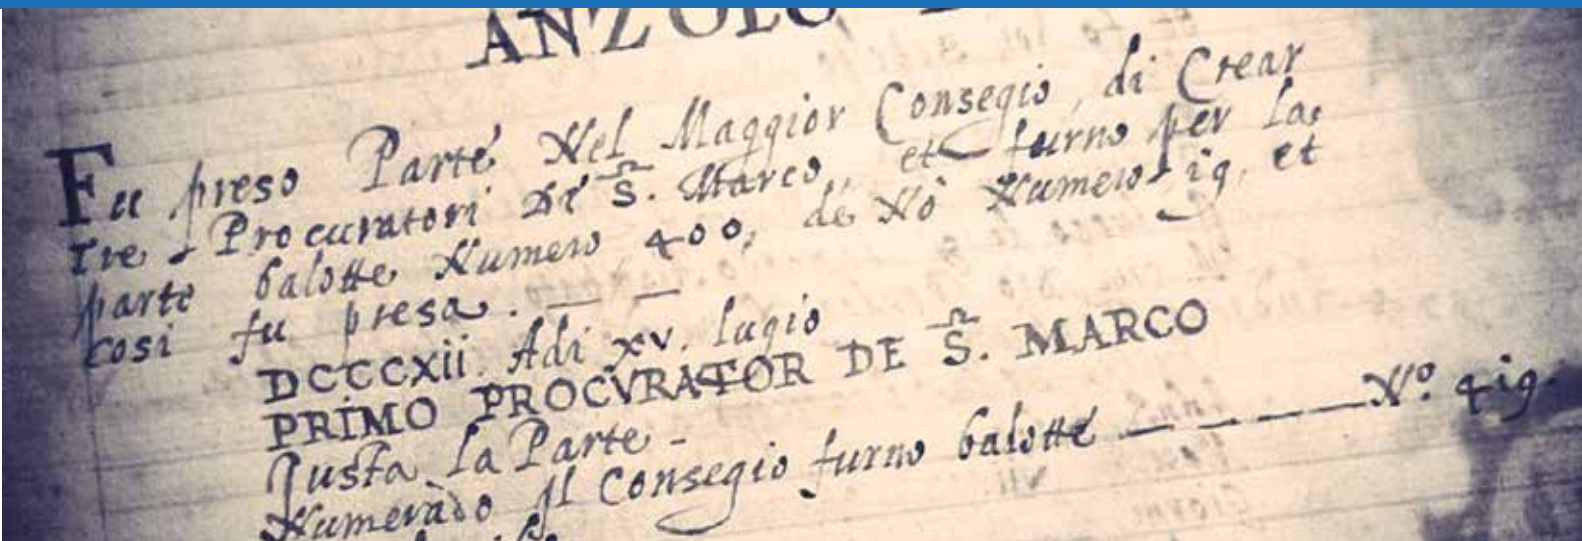 ANZOLO
Fu preso Parte Nel Maggior Consegio, di Crear
tre Procuratori Di S. Marco, et furno per la
parte balotte Numero 400, de Nò Numero 19, et
cosi fu presa.
DCCCXII. Adi XV. lugio
PRIMO PROCVRATOR DE S. MARCO
Justa la Parte -
Numerado Il Consegio furno balotte — — — — Nº. 419.